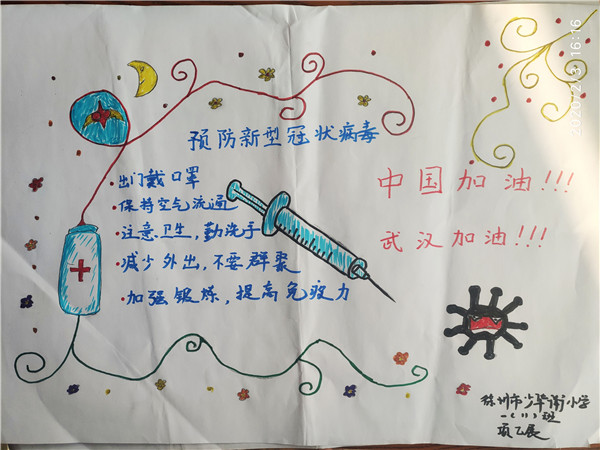 预防新型冠状病毒
·出门戴口罩
·保持空气流通
·注意卫生,勤洗手
·减少外出,不要群聚
·加强锻炼,提高免疫力
中国加油!!!
武汉加油!!!
徐州市少华街小学
一(11)班
项乙展
2020/2/3 16:16